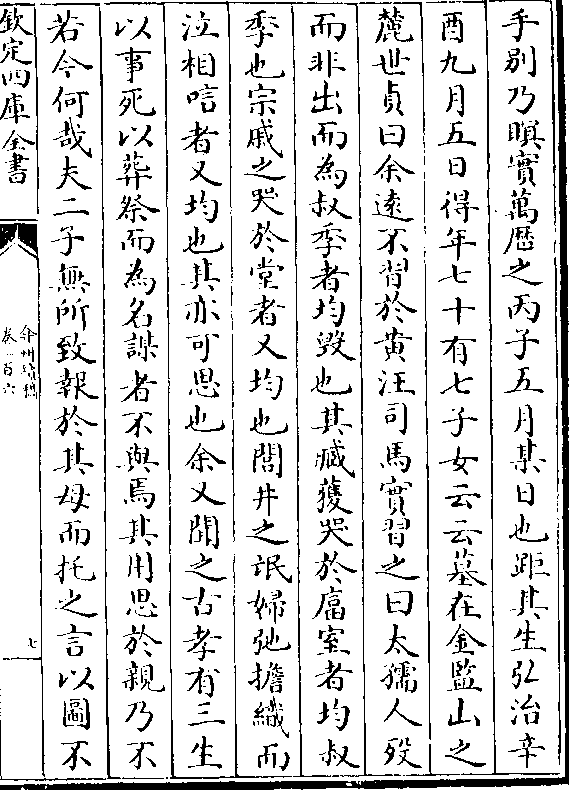 手別乃瞑實萬厯之丙子五月某日也距其生弘治辛
酉九月五日得年七十有七子女云云墓在金監山之
麓世貞曰余逺不習於黄汪司馬實習之曰太孺人殁
而非出而為叔季者均毁也其臧獲哭於廧室者均叔
季也宗戚之哭於堂者又均也閭井之氓婦弛擔織而
泣相唁者又均也其亦可思也余又聞之古孝有三生
以事死以葬祭而為名謀者不與焉其用思於親乃不
若今何哉夫二子無所致報於其母而托之言以圖不
欽定四庫全書
弇州續稿
卷一百六
七